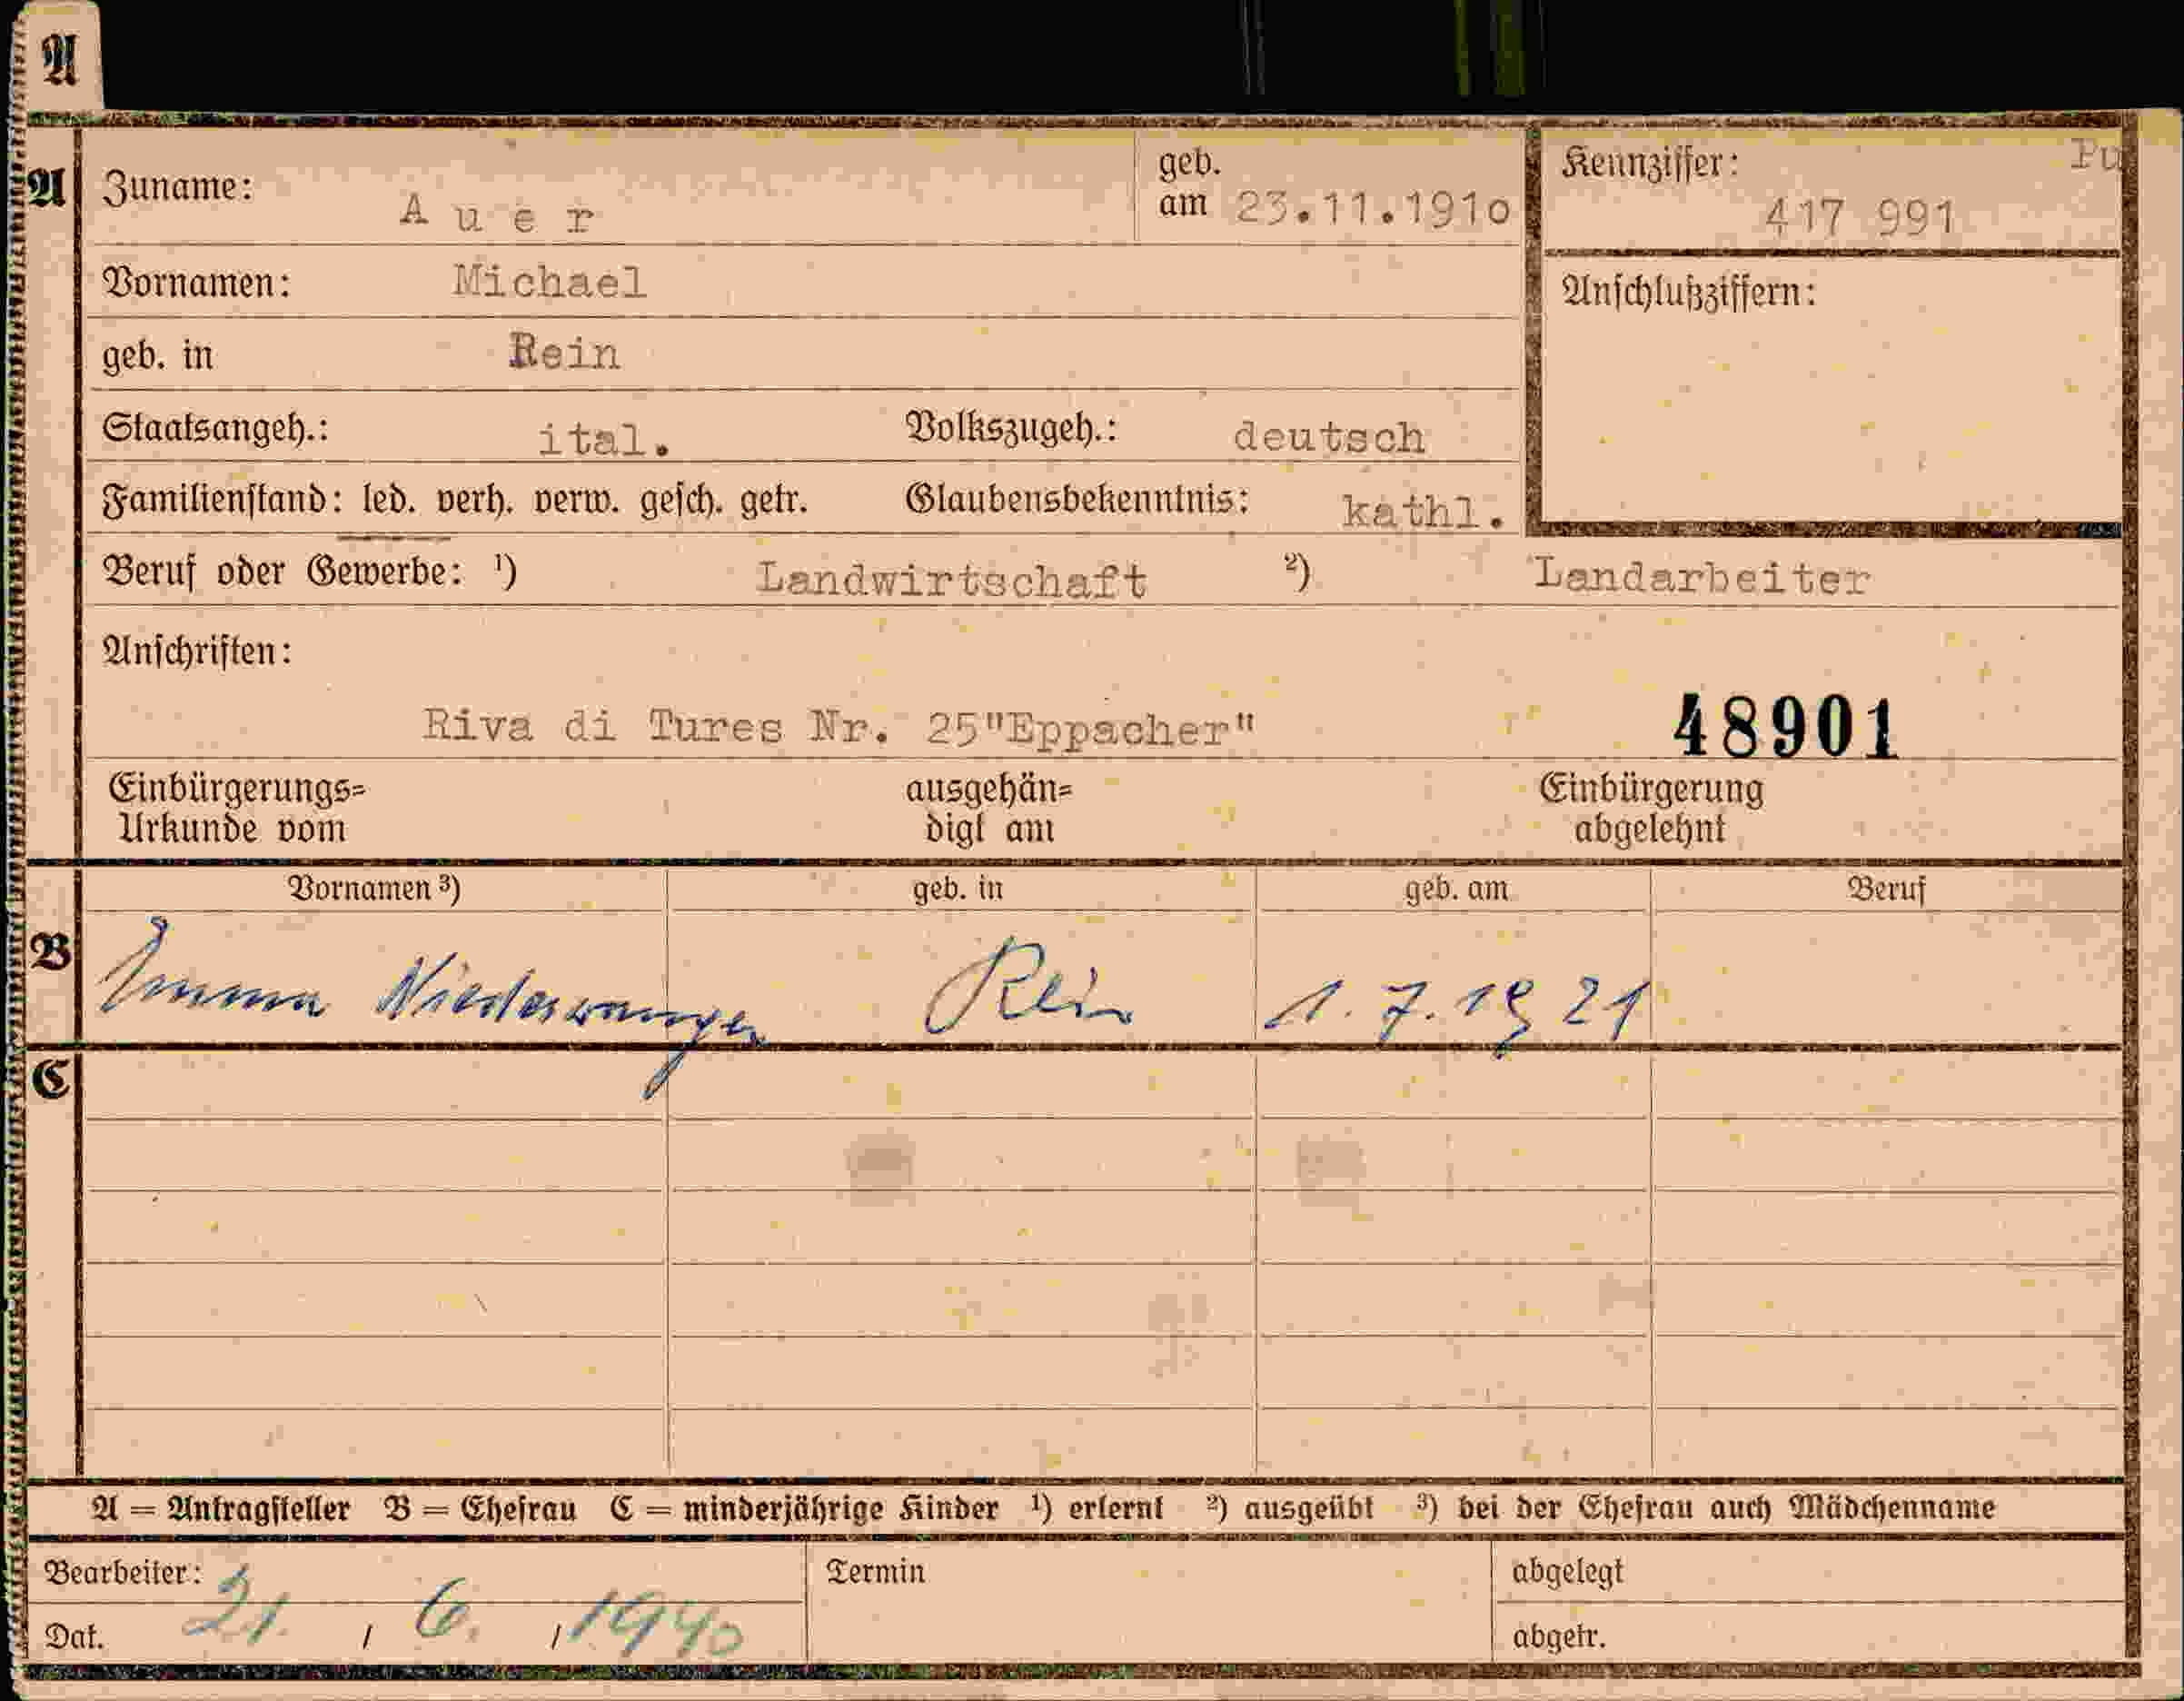 A
A Zuname: A u e r geb. am 23.11.1910 Kennziffer: Pu
417 991
Vornamen: Michael Anschlußziffern:
geb. in Rein
Staatsangeh.: ital. Volkszugeh.: deutsch
Familienstand: led. verh. verw. gesch. getr. Glaubensbekenntnis: kathl.
Beruf oder Gewerbe: ¹) Landwirtschaft ²) Landarbeiter
Anschriften:
Riva di Tures Nr. 25"Eppacher" 48901
Einbürgerungs= ausgehän= Einbürgerung
Urkunde vom digt am abgelehnt
Vornamen ³) geb. in geb. am Beruf
B Emma Niederwanger Rein 1.7.1921
C
A = Antragsteller B = Ehefrau C = minderjährige Kinder ¹) erlernt ²) ausgeübt ³) bei der Ehefrau auch Mädchenname
Bearbeiter: Termin abgelegt
Dat. 21. / 6. / 1940 abgetr.